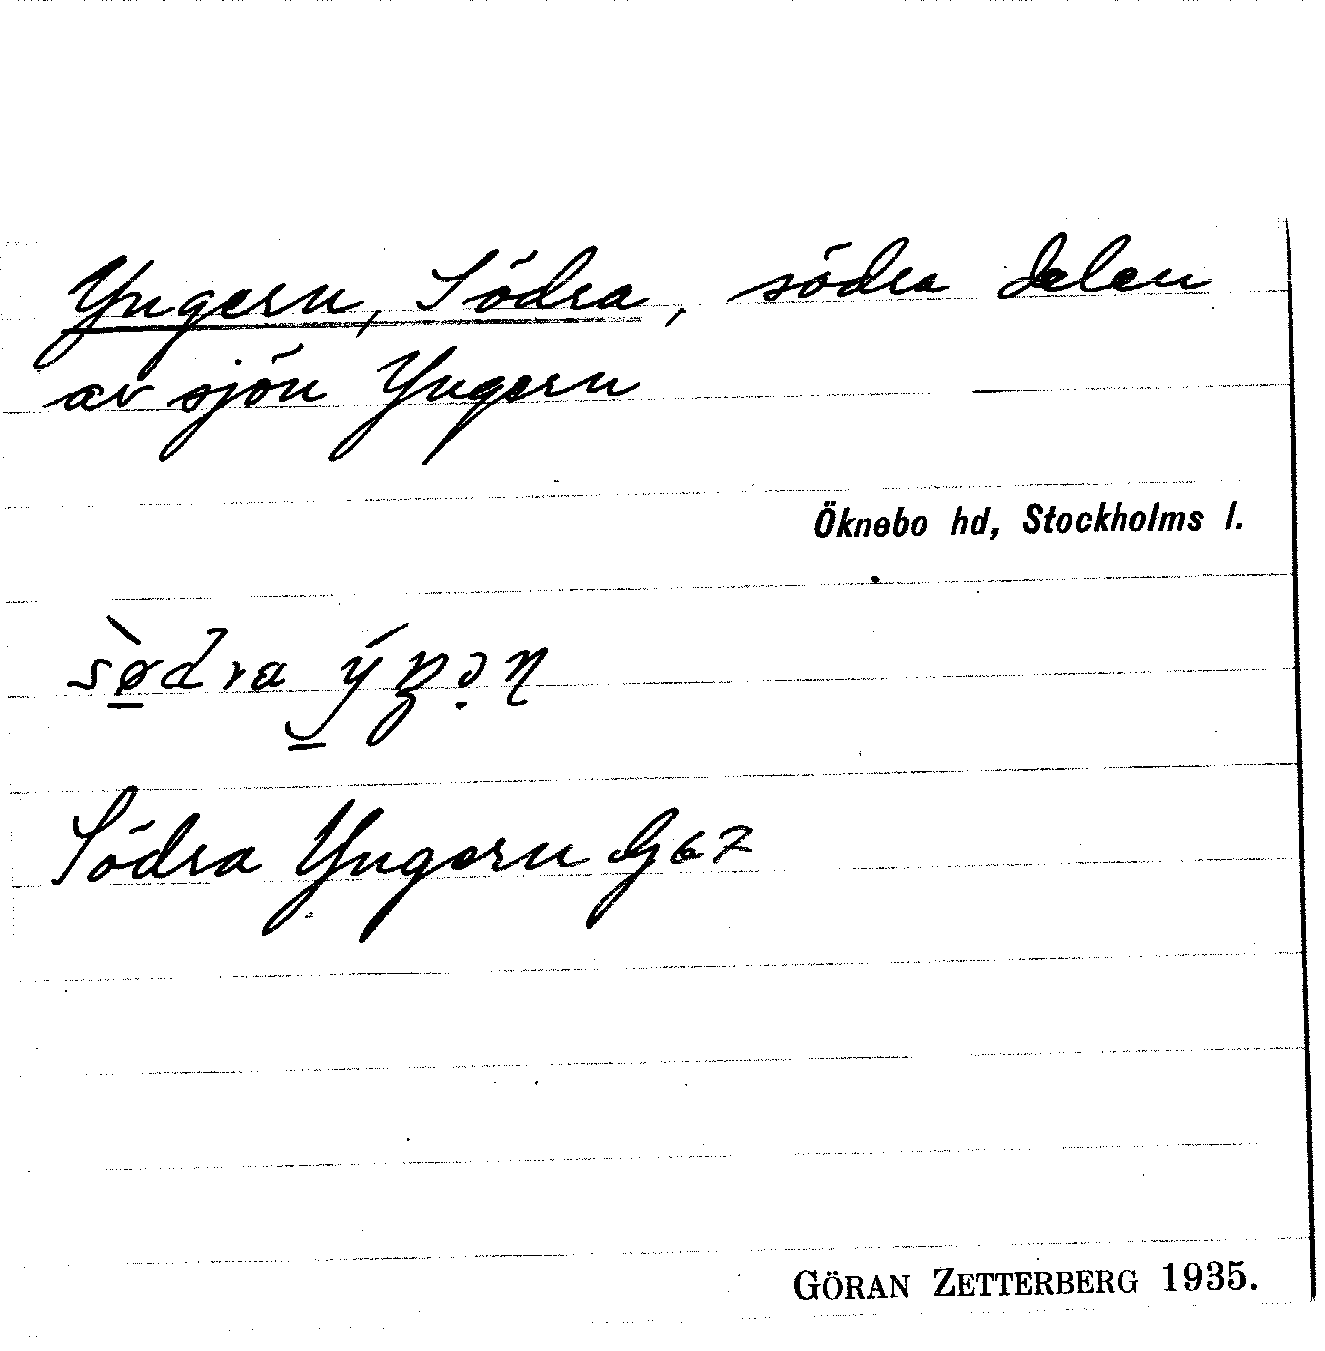 Yngern, Södra, södra delen
av sjön Yngern
Öknebo hd, Stockholms l.
Södra Yngern G 67
GÖRAN ZETTERBERG 1935.